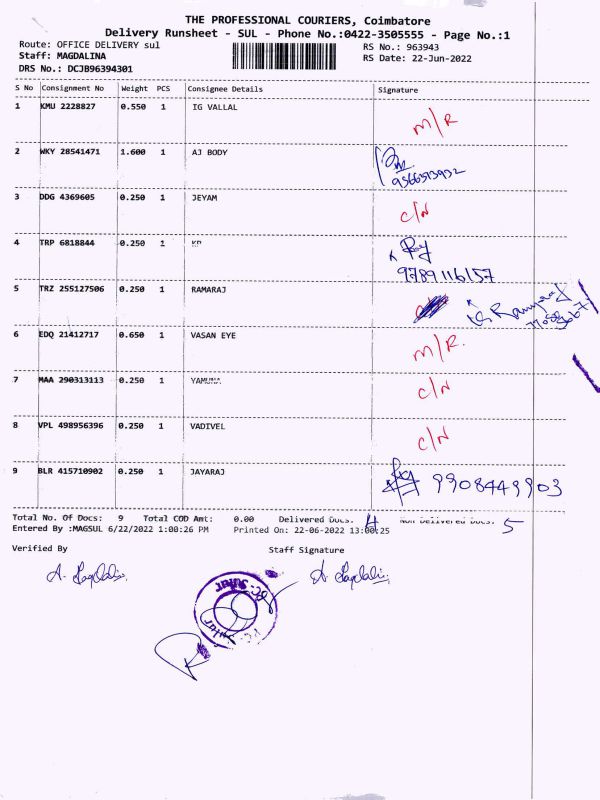 THE PROFESSIONAL COURIERS, Coimbatore
Delivery Runsheet - SUL - Phone No.:0422-3505555 - Page No.:1
Route: OFFICE DELIVERY sul
RS No.: 963943
Staff: MAGDALINA
RS Date: 22-Jun-2022
DRS No.: DCJB96394301
S No Consignment No Weight PCS Consignee Details Signature
1 KMU 2228827 0.550 1 IG VALLAL
M/R
2 WKY 28541471 1.600 1 AJ BODY
9566593932
3 DDG 4369605 0.250 1 JEYAM
C/N
4 TRP 6818844 0.250 1 KP
9789116157
5 TRZ 255127506 0.250 1 RAMARAJ
6 EDQ 21412717 0.650 1 VASAN EYE
M/R.
7 MAA 290313113 0.250 1 YAMUNA
C/N
8 VPL 498956396 0.250 1 VADIVEL
C/N
9 BLR 415710902 0.250 1 JAYARAJ
9908449903
Total No. Of Docs: 9 Total COD Amt: 0.00 Delivered Docs. 4 Non Delivered Docs. 5
Entered By :MAGSUL 6/22/2022 1:00:26 PM Printed On: 22-06-2022 13:00:25
Verified By Staff Signature